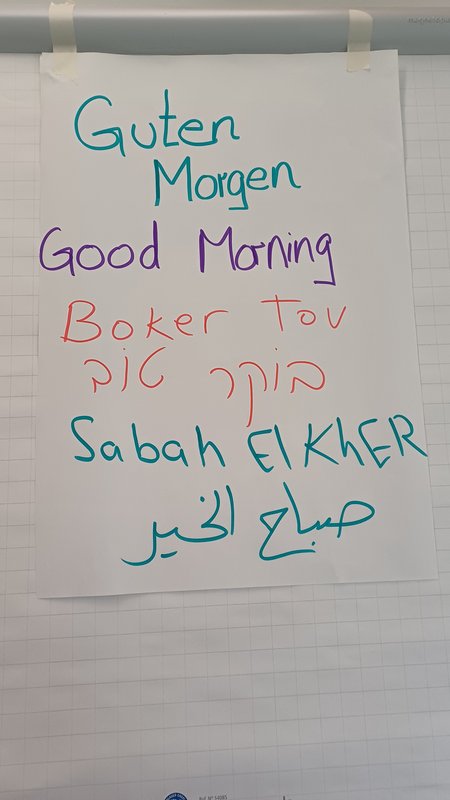 Guten
Morgen
Good Morning
Boker Tov
בוקר טוב
Sabah El KhER
صباح الخير